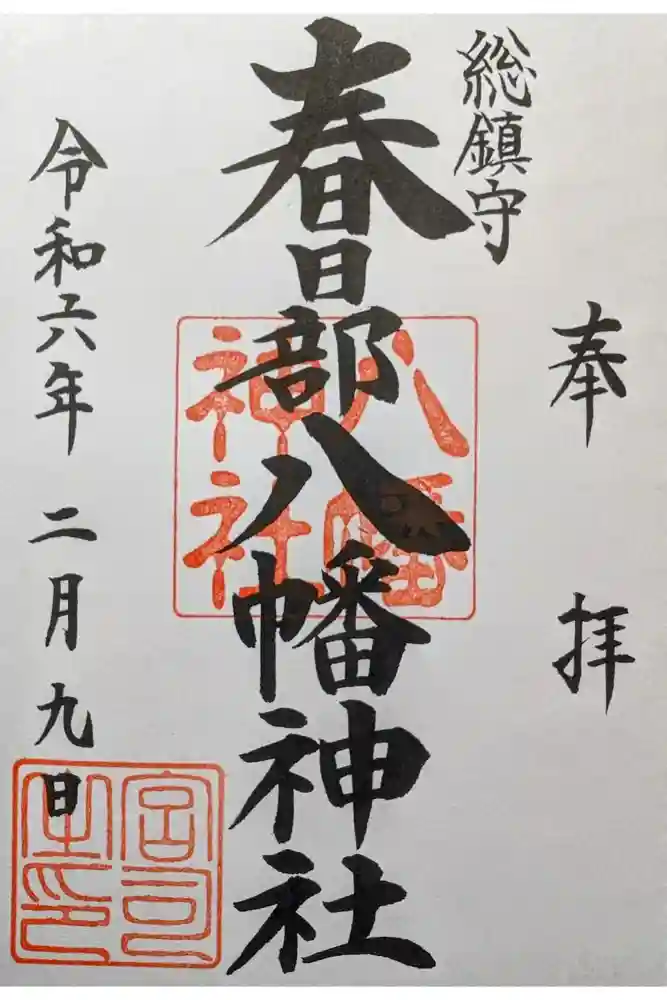 奉拝
総鎮守
春日部八幡神社
令和六年 二月九日
八幡
神社
宮司
之印